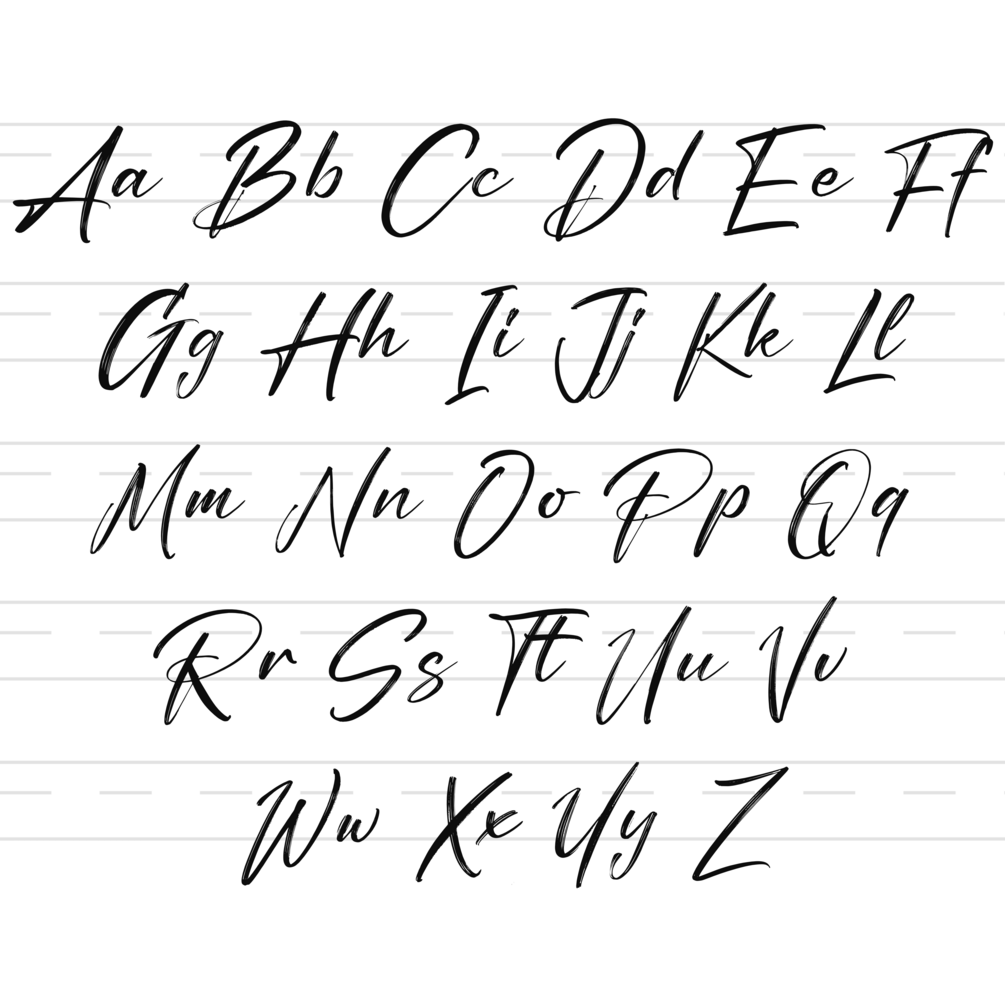 Aa Bb Cc Dd Ee Ff
Gg Hh Ii Jj Kk Ll
Mm Nn Oo Pp Qq
Rr Ss Tt Uu Vv
Ww Xx Yy Z